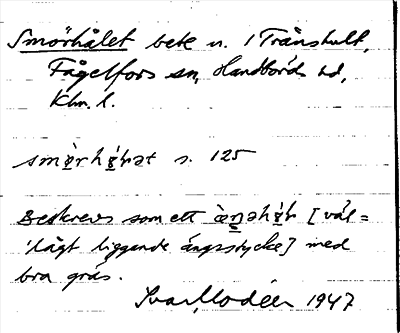 Smörhålet bete n. 1 Trånshult,
Fågelfors sn, Handbörds hd,
Klm. l.
smø̀rhǿ̜ɫət s. 125
Beskrevs som ett [vål=
lågt liggande ängsstycke] med
bra gräs.
Ivar Modéer 1947